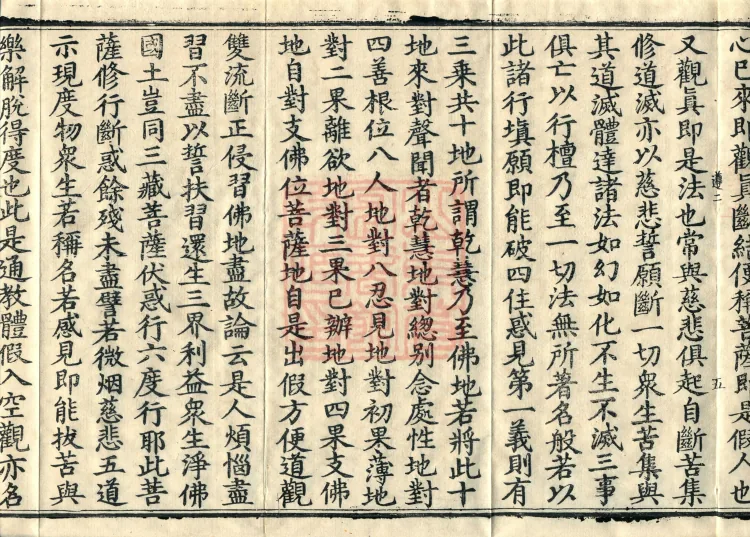 心已來即觀眞斷結但稱菩薩即是假人也
又觀眞即是法也常與慈悲俱起自斷苦集
修道滅亦以慈悲誓願斷一切衆生苦集與
其道滅體達諸法如幻如化不生不滅三事
俱亡以行檀乃至一切法無所著名般若以
此諸行填願即能破四住惑見第一義則有
遵二
五
三乘共十地所謂乾慧乃至佛地若將此十
地來對聲聞者乾慧地對總別念處性地對
四善根位八人地對八忍見地對初果薄地
對二果離欲地對三果已辦地對四果支佛
地自對支佛位菩薩地自是出假方便道觀
雙流斷正侵習佛地盡故論云是人煩惱盡
習不盡以誓扶習還生三界利益衆生淨佛
國土豈同三藏菩薩伏惑行六度行耶此菩
薩修行斷惑餘殘未盡譬若微烟慈悲五道
示現度物衆生若稱名若感見即能拔苦與
樂解脫得度也此是通教體假入空觀亦名